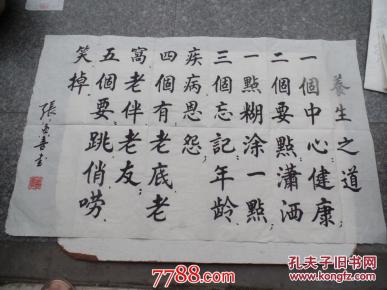 養生之道
一個中心健康
二個要點瀟洒
一點糊涂一點
三個忘記年齡
疾病恩怨
四個有老底老
窩老伴老友
五個要跳俏唠
笑掉
張 喜書
7788.com
孔夫子旧书网